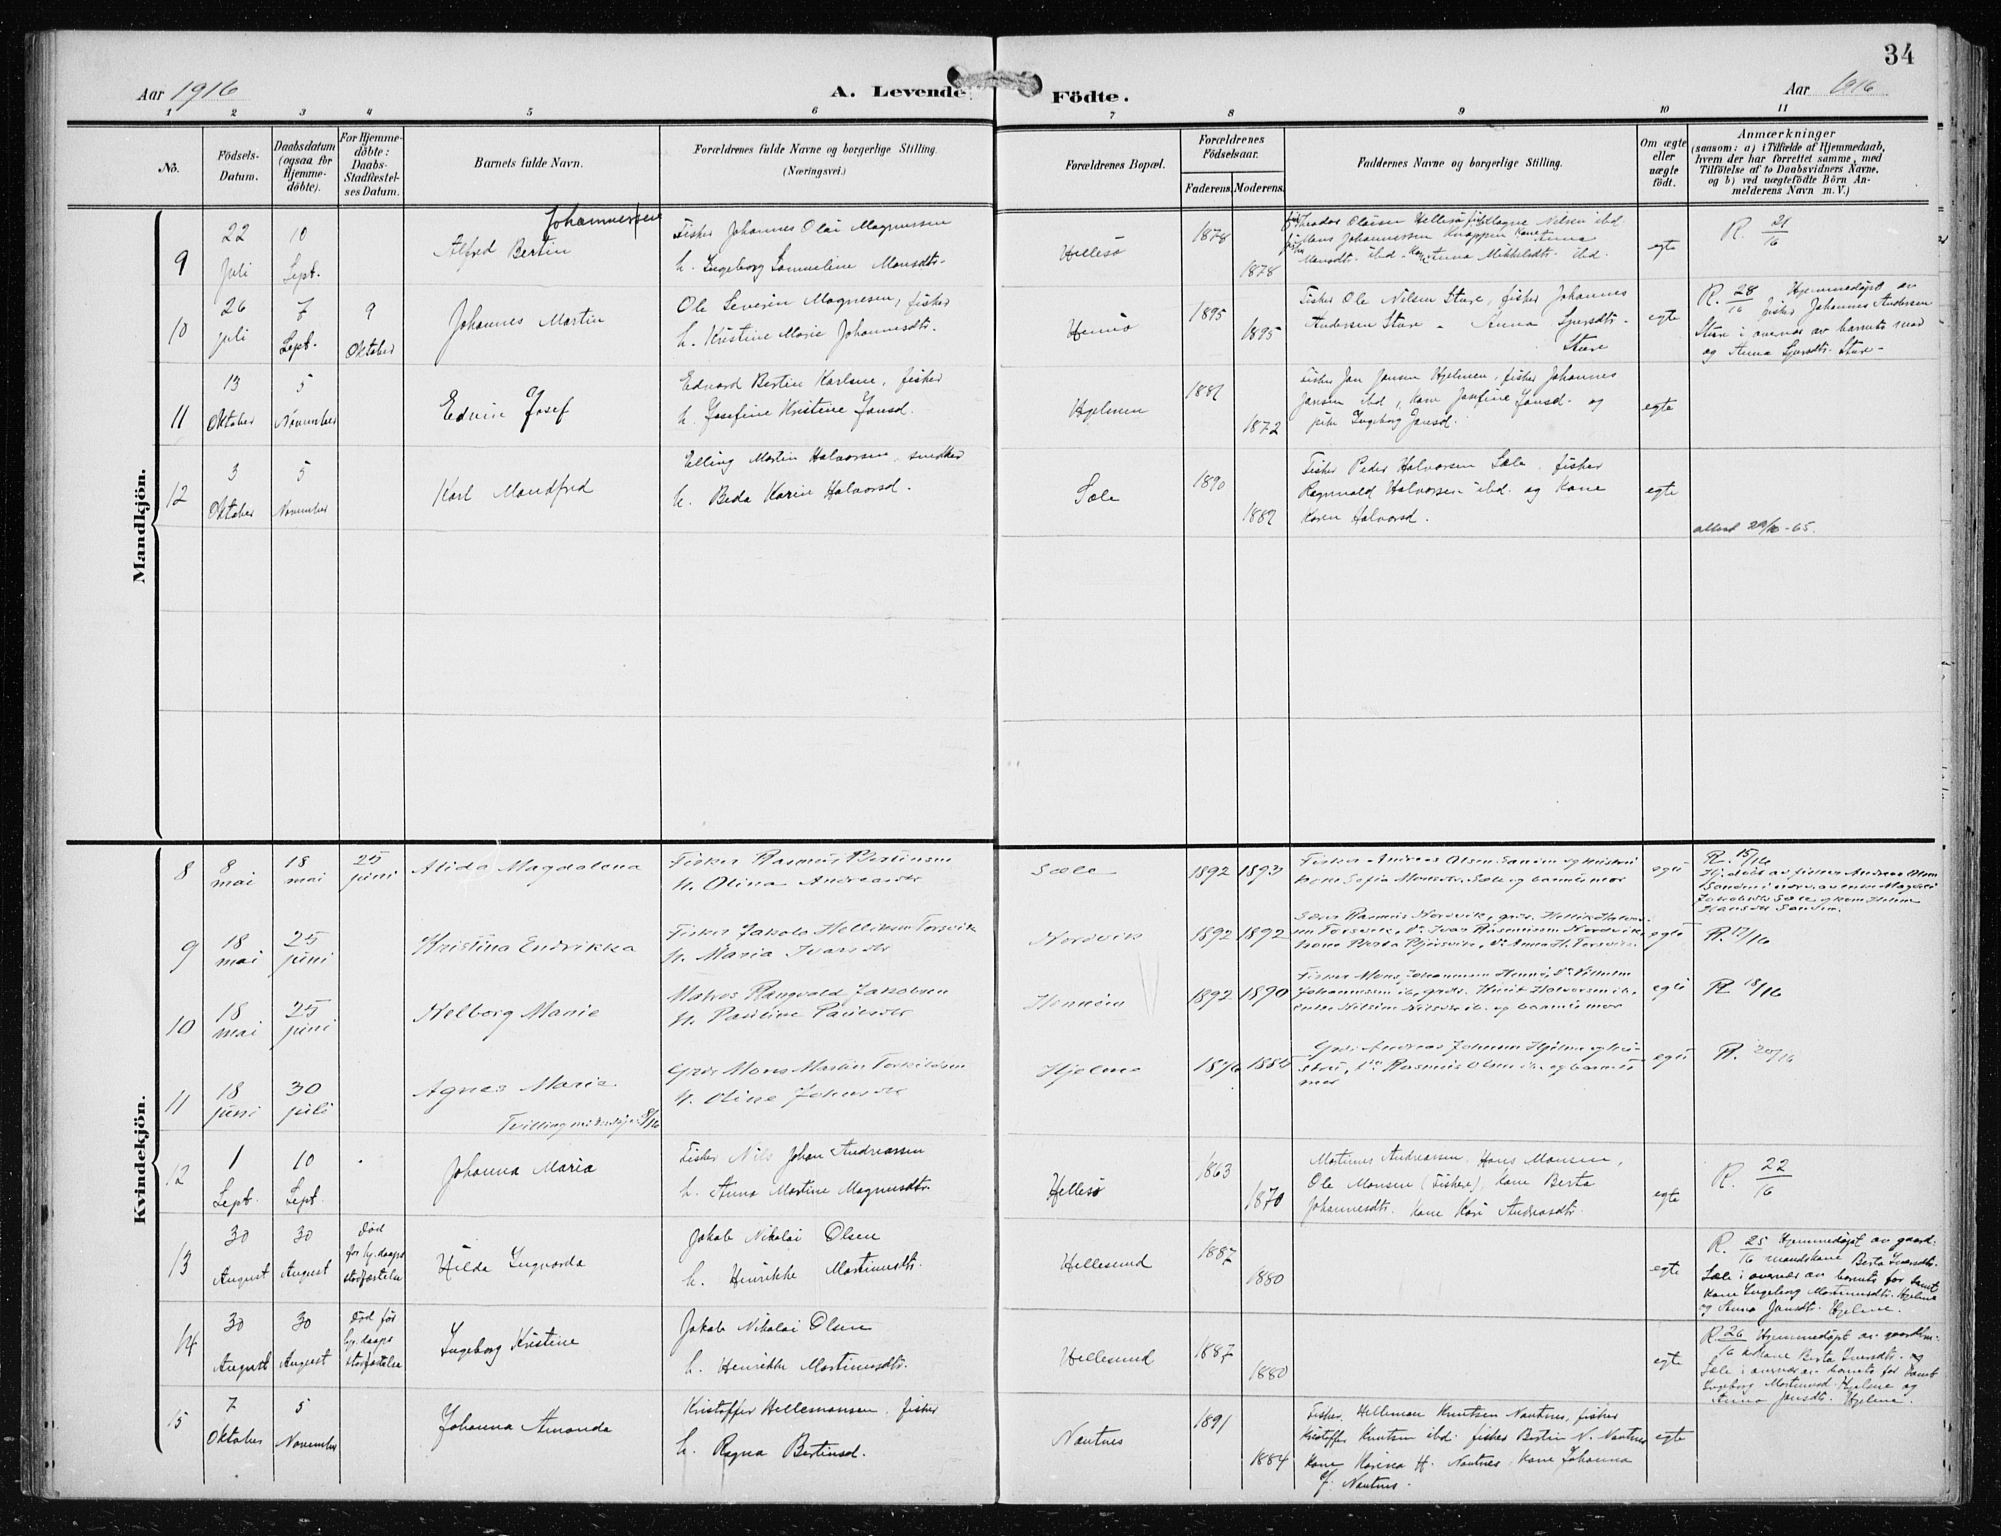 34
Aar 1916
A. Levende Födte.
Aar 1916
1 2 3 4 5 6 7 8 9 10 11
No.
Födsels-Datum.
Daabsdatum (ogsaa for Hjemme-döbte).
For Hjemme-döbte: Daabs-Stadfæstel-ses Datum.
Barnets fulde Navn.
Forældrenes fulde Navne og borgerlige Stilling.
(Næringsvei.)
Forældrenes Bopæl.
Forældrenes Födselsaar.
Faderens. Moderens.
Faddernes Navne og borgerlige Stilling.
Om ægte eller uægte födt.
Anmærkninger
(saasom: a) i Tilfælde af Hjemmedaab,
hvem der har forrettet samme, med
Tilföielse af to Daabsvidners Navne,
og b) ved uægtefödte Börn An-
melderens Navn m. V.)
Mandkjön.
9
22 Juli
10 Sept.
Alfred Bertin Johannessen
Fisker Johannes Olai Magnussen
h. Ingeborg Samueline Monsdtr.
Hellesö
1878
1878
Mons Johannessen
Monsdtr. ibd. Anna Mikkelsdtr. ibd.
egte
R 21/16
10
26 juli
7 Sept.
9 Oktober
Johannes Martin
Ole Severin Magnesen, fisker
h. Kristine Marie Johannesdtr.
Hennö
1895
1895
Fisker Ole Nilsen Sture, fisker Johannes
Andersen Sture - Anna Sjursdtr.
Sture
egte
R. 28/16 Hjemmedøpt av
fisker Johannes Andersen
Sture i overvær av barnets mor
og Anna Sjursdtr. Sture-
11
13 Oktober
5 November
Edvin og Josef
Edvard Bertin Karlsen, fisker
h. Josefine Kristine Jonsd.
Hjelmen
1881
1872
Fisker Jon Jonsen Hjelmen, fisker Johannes
Jansen ibd, kone Josefine Jonsd. og
pike Ingeborg Jonsd.
egte
12
3 Oktober
5 November
Karl Mandfred
Elling Martin Halvorsen, snedker
h. Beda Karin Halvorsd.
Sæle
1890
1887
Fisker Peder Halvorsen Sæle, fisker
Ragnvald Halvorsen ibd. og kone
Karen Halvorsd.
egte
attest 20/10-65.
Kvindekjön.
8
8 mai
18 mai
25 juni
Alida Magdalena
Fisker Rasmus Bertinsen
h. Olina Andreasdtr
Sæle
1892 1893
Fisker Andreas Olsen Sandøen og hustru
kone Sofia Monsdtr. Sæle og barnets mor
egte
R. 15/16
Hj.døbt av fisker Andreas Olsen
9
18 mai
25 juni
Kristina Endrikka
Fisker Jakob Helliksen Torsvik
h. Maria Ivarsdtr
Nordvik
1892 1892
egte
R. 17/16
10
18 mai
25 juni
Helborg Marie
Matros Rangvald Jakobsen
h. Pauline Paulsdtr
Hennöen
1892 1890
Fisker Mons Johannessen Hennö, Do Vilhelm
Johannessen ib., grds. Knut Halvorsen ib.,
og barnets mor
egte
R 18/16
11
18 juni
30 juli
Agnes Marie
Grds Mons Martin Torkildsen
h. Oline Johnsdtr
Tvilling
Hjelme
1876 1880
Grds Andreas Johnsen Hjelme og hu-
stru, Do Rasmus Olsen ib. og barnets
mor
egte
R. 20/16
12
1 Sept.
10 Sept.
Johanna Maria
Fisker Nils Johan Andreassen
h. Anna Martine Magnusdtr.
Hellesö
1863
1870
Martinus Andreassen, Hans Monsen,
Ole Monsen (Fiskere), kone Berta
Johannesdtr. kone Kari Andreasdtr.
egte
R. 22/16
13
30 August
30 August
Død før hj.daaps stadfæstelse
Hilda Ingvarda
Jakob Nikolai Olsen
h. Henrikke Martinusdtr.
Hellesund
1887
1880
egte
R. 25/16 Hjemmedøpt av gaard-
mandskone Berta Iversdtr.
Sæle i overvær av barnets far samt
kone Ingeborg Martinusdtr. Hjelme
og Anna Jonsdtr. Hjelme.
14
30 August
30 August
Død før hj.daaps stadfæstelse
Ingeborg Kristine
Jakob Nikolai Olsen
h. Henrikke Martinusdtr.
Hellesund
1887
1880
egte
R. 26/16 Hjemmedøpt av gaardm.
kone Berta Iversdtr.
Sæle i overvær av barnets far samt
Ingeborg Martinusd. Hjelme og
Anna Jonsdtr. Hjelme.
15
7 Oktober
5 November
Johanna Amanda
Kristoffer Hellemansen, fisker
h. Ragna Bertinsd.
Nautnes
1891
1884
Fisker Helleman Knutsen Nautnes, fisker
Kristoffer Knutsen ibd. fisker Bertin N. Nautnes
kone Karina H. Nautnes, kone Johanna
J. Nautnes.
egte